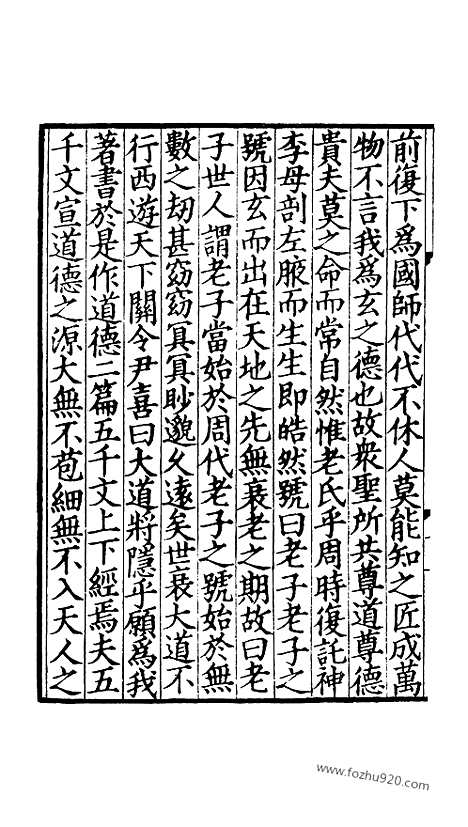 前復下爲國師代代不休人莫能知之匠成萬
物不言我爲玄之德也故衆聖所共尊道尊德
貴夫莫之命而常自然惟老氏乎周時復託神
李母剖左腋而生生即皓然號曰老子老子之
號因玄而出在天地之先無衰老之期故曰老
子世人謂老子當始於周代老子之號始於無
數之劫甚窈窈冥冥眇邈久遠矣世衰大道不
行西遊天下關令尹喜曰大道將隱乎願爲我
著書於是作道德二篇五千文上下經焉夫五
千文宣道德之源大無不苞細無不入天人之
www.fozhu920.com